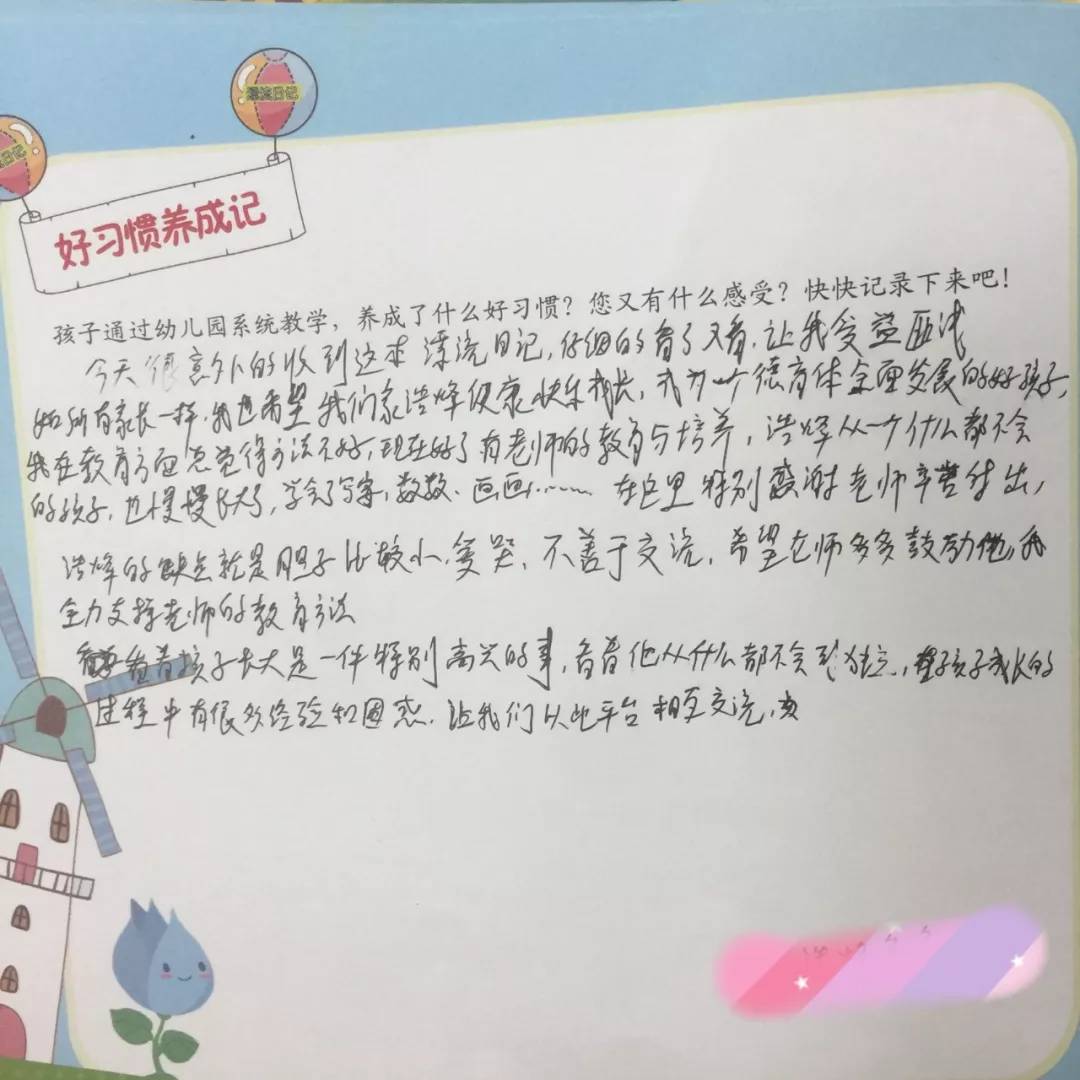 漂流日记
日记
好习惯养成记
孩子通过幼儿园系统教学，养成了什么好习惯？您又有什么感受？快快记录下来吧！
今天很意外的收到这本漂流日记，仔细的看了又看，让我受益匪浅
如所有家长一样，我也希望我们家浩烽健康快乐成长，成为一个德育体全面发展的好孩子，
我在教育方面总觉得方法不好，现在好了有老师的教育与培养，浩烽从一个什么都不会
的孩子，也慢慢长大了，学会了写字，数数、画画…… 在这里特别感谢老师辛苦付出，
浩烽的缺点就是胆子比较小，爱哭，不善于交流，希望老师多多鼓励他，我
全力支持老师的教育方法
看着孩子长大是一件特别高兴的事，看着他从什么都不会到独立，在孩子成长的
过程中有很多经验和困惑，让我们从此平台相互交流，